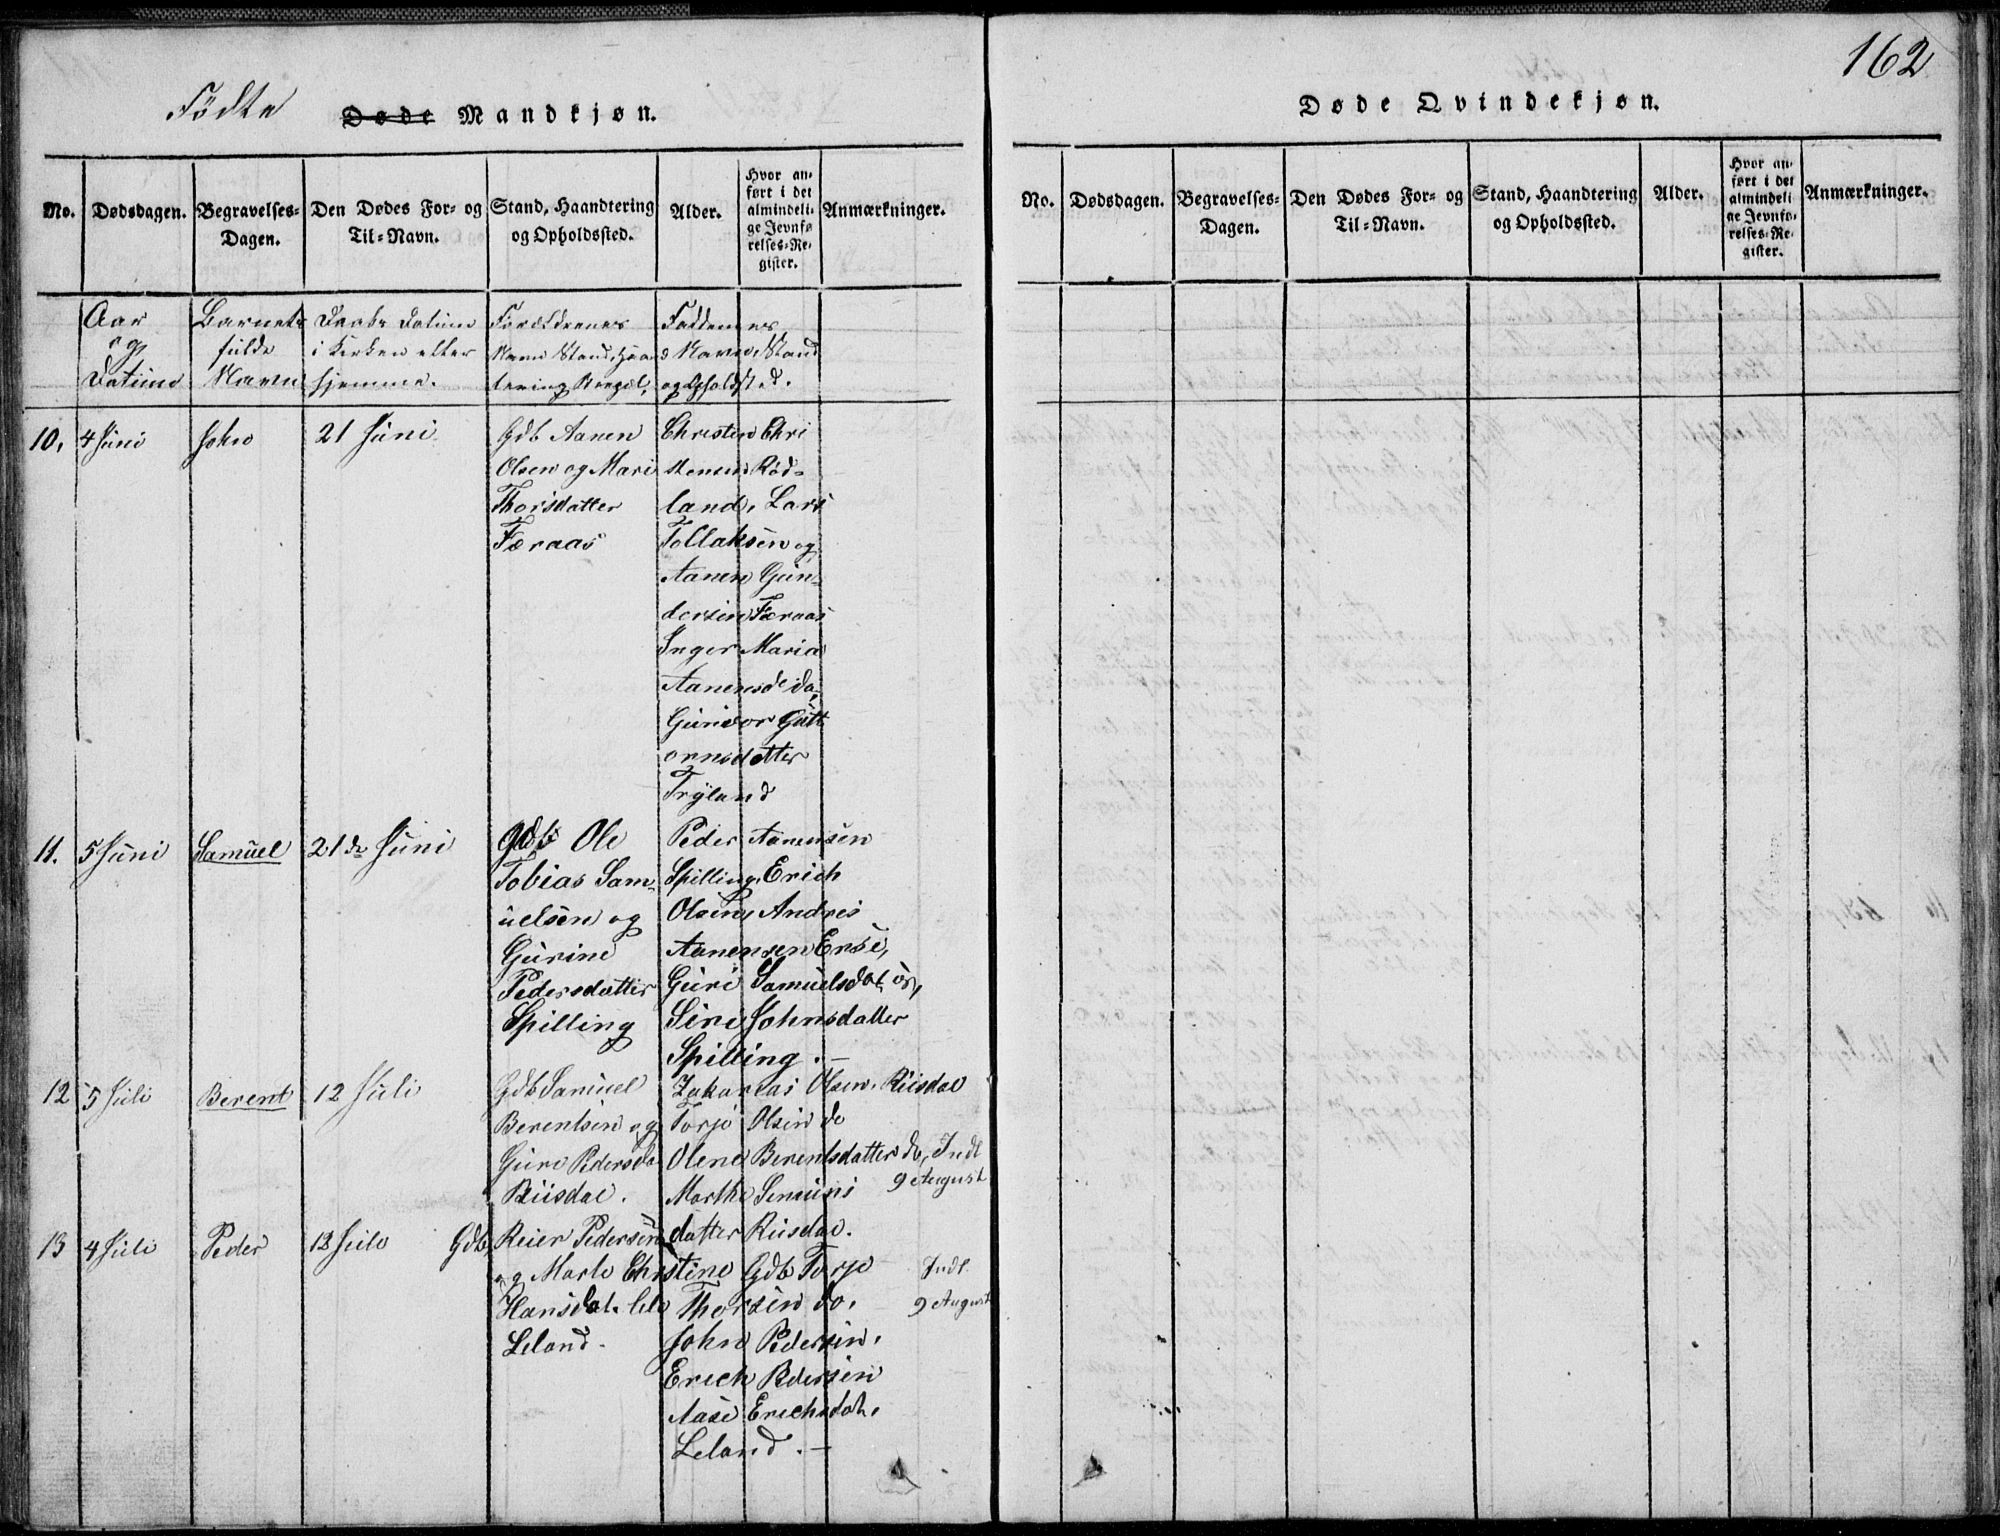 162
Födte Døde Mandkjøn.
No. Dødsdagen. Begravelses-Dagen. Den Dødes For- og Til-Navn. Stand, Haandtering og Opholdssted. Alder. Hvor anført i det almindelige Jevnførelses-Register. Anmærkninger.
Aar og Datum
Barnets fulde Navn
Daabs Datum i Kirken eller hjemme.
Forældrenes Navn Stand, Haan
Faddernes Navn, Stand og Opholdsted.
10. 4 Juni John 21 Juni
Gdb Aanen
Olsen og Mari
Thorsdatter
Færaas
Christen Chri
stensen Röd-
land, Lars
Tollaksen og
Aanen Gün-
dersen Færaas
Inger Maria
Aanensd do,
Gunvor Gütt
ormsdatter
Tryland
11. 5 Juni Samüel 21de Juni
Gdb Ole
Tobias Sam-
uelsen og
Gürine
Pedersdatter
Spilling
Peder Aanensen
Spilling, Erich
Olsen, Andres
Aanensen
Güri Samüelsdat
Siri Johnsdatter
Spilling.—
12 5 Juli Berent 12 Juli
Gdb Samüel
Berentsen og
Güri Pedersda
Riisdal.
Zakarias Olsen, Riisdal
Torjo Olsen do
Olene Berentsdatter do, Indl
9 August
Marthe
datter Riisdal.
13 4 Juli Peder 12 Juli
Gdb Reier Pedersen
og Marte Christine
Hansdat.
Leland.
Gdb Torje
Thorsen do.
Indl.
9 August
John Pedersen,
Erich Pedersen
Aase Erichsdat,
Leland.—
Døde Qvindekjøn.
No. Dødsdagen. Begravelses-Dagen. Den Dødes For- og Til-Navn. Stand, Haandtering og Opholdssted. Alder. Hvor anført i det almindelige Jevnførelses-Register. Anmærkninger.